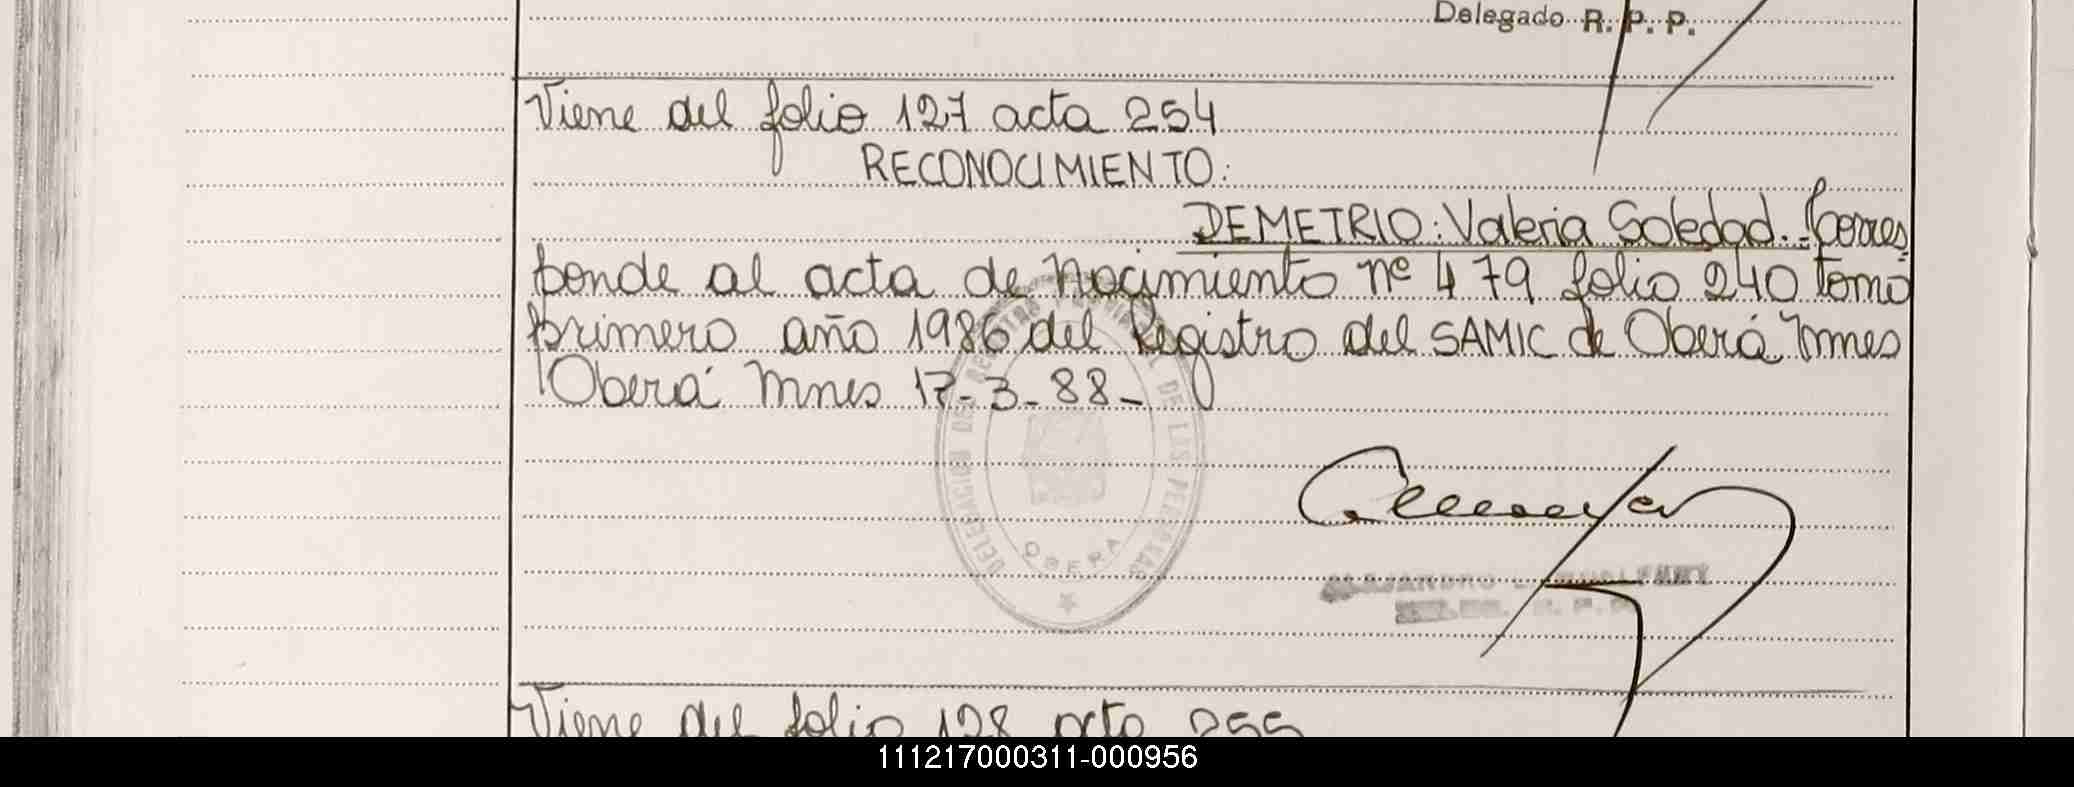 Delegado R. P. P.
Viene del folio 127 acta 254
RECONOCIMIENTO:
DEMETRIO: Valeria Soledad.- Corres
ponde al acta de Nacimiento nº 479 folio 240 tomo
primero año 1986 del Registro del SAMIC de Oberá Mnes
Oberá Mnes 17-3-88-
DELEGACION DEL REGISTRO PROVINCIAL DE LAS PERSONAS
OBERA
ALEJANDRO
R. P. P.
Viene del folio 128 acta 255
111217000311-000956